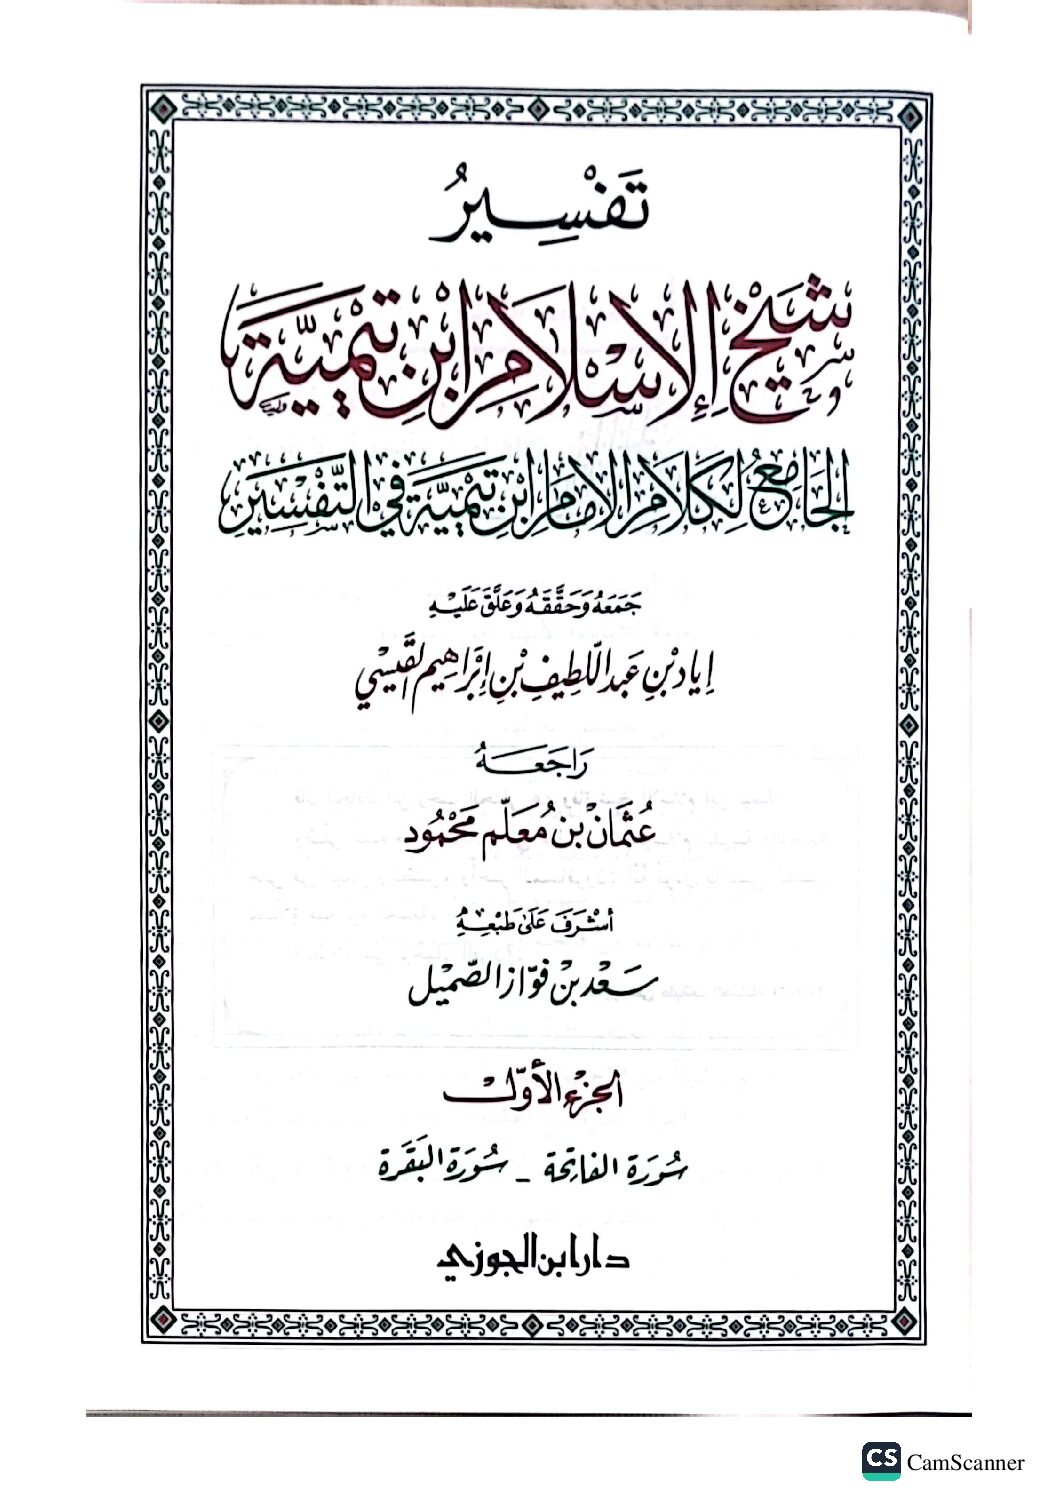 تَفْسِيرُ
شَيْخِ الإِسْلَامِ ابْنِ تَيْمِيَّةَ
الجَامِعُ لِكَلَامِ الإِمَامِ ابْنِ تَيْمِيَّةَ فِي التَّفْسِيرِ
جَمَعَهُ وَحَقَّقَهُ وَعَلَّقَ عَلَيْهِ
إياد بْنِ عَبد اللّطِيفِ بْنِ إِبْرَاهِيم القَيسِي
رَاجَعَهُ
عُثمَان بْن مُعَلّم مَحْمُود
أشْرَفَ عَلَى طَبْعِهِ
سَعْد بن فَوّاز الصّمَيْل
الجزْء الأَوّل
سُورَة الفَاتِحَة - سُورَة البَقَرَة
دار ابن الجوزي
CS CamScanner